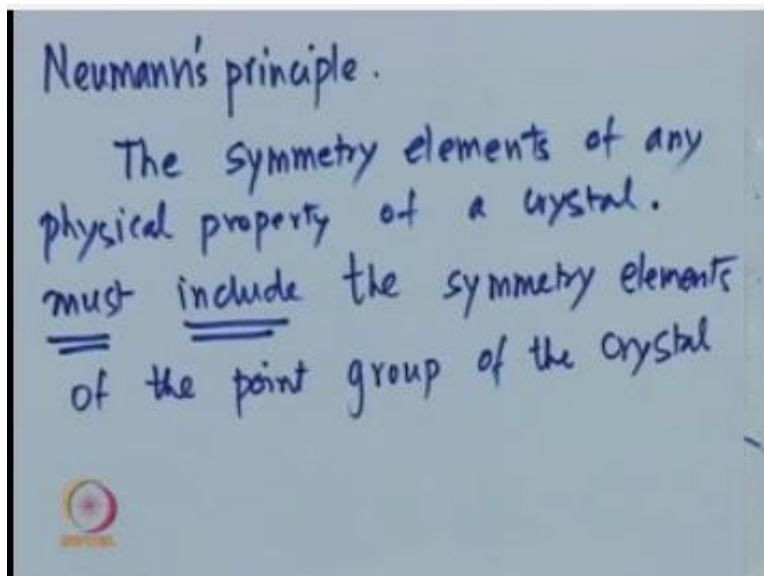 Neumann's principle.
The symmetry elements of any
physical property of a crystal.
must include the symmetry elements
of the point group of the crystal